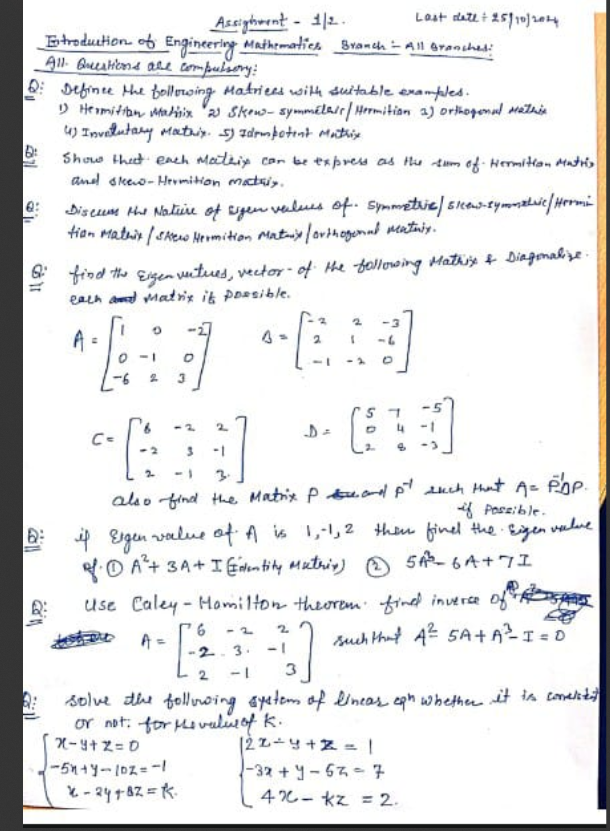 Assignment - 1/2. Last date : 25/10/2024
Introduction of Engineering Mathematics Branch :- All Branches:
All Questions are compulsory:
Q: Definee the following Matrices with suitable examples.
1) Hermitian Matrix 2) Skew-symmetric/Hermitian 3) orthogonal Matrix
4) Involutary Matrix. 5) Idempotent Matrix
Q: Show that each Matrix can be express as the sum of Hermitian Matrix
and skew-Hermitian matrix.
Q: Discuss the Nature of Eigen values of. Symmetric/skew-symmetric/Hermi-
tian Matrix/skew Hermitian Matrix/orthogonal matrix.
Q: find the Eigen values, vector-of the following Matrix & Diagonalize
each Matrix if possible.
A = [1 0 -2
0 -1 0
-6 2 3]
B = [-2 2 -3
2 1 -6
-1 -2 0]
C = [6 -2 2
-2 3 -1
2 -1 3]
D = [5 7 -5
0 4 -1
2 8 -3]
also find the Matrix P and P⁻¹ such that A = P⁻¹DP.
if Possible.
Q: if Eigen value of A is 1,-1,2 then find the Eigen value
of ① A²+3A+I (Identity Matrix) ② 5A³-6A+7I
Q: Use Caley-Hamilton theorem. find inverse of
A = [6 -2 2
-2 3 -1
2 -1 3]
such that A² 5A+A³-I=0
Q: solve the following system of linear eqn whether it is consistet
or not. for the value of K.
x-y+z=0
-5x+y-10z=-1
x-2y+8z=k.
2x-y+z=1
-3x+y-6z=7
4x-kz=2.